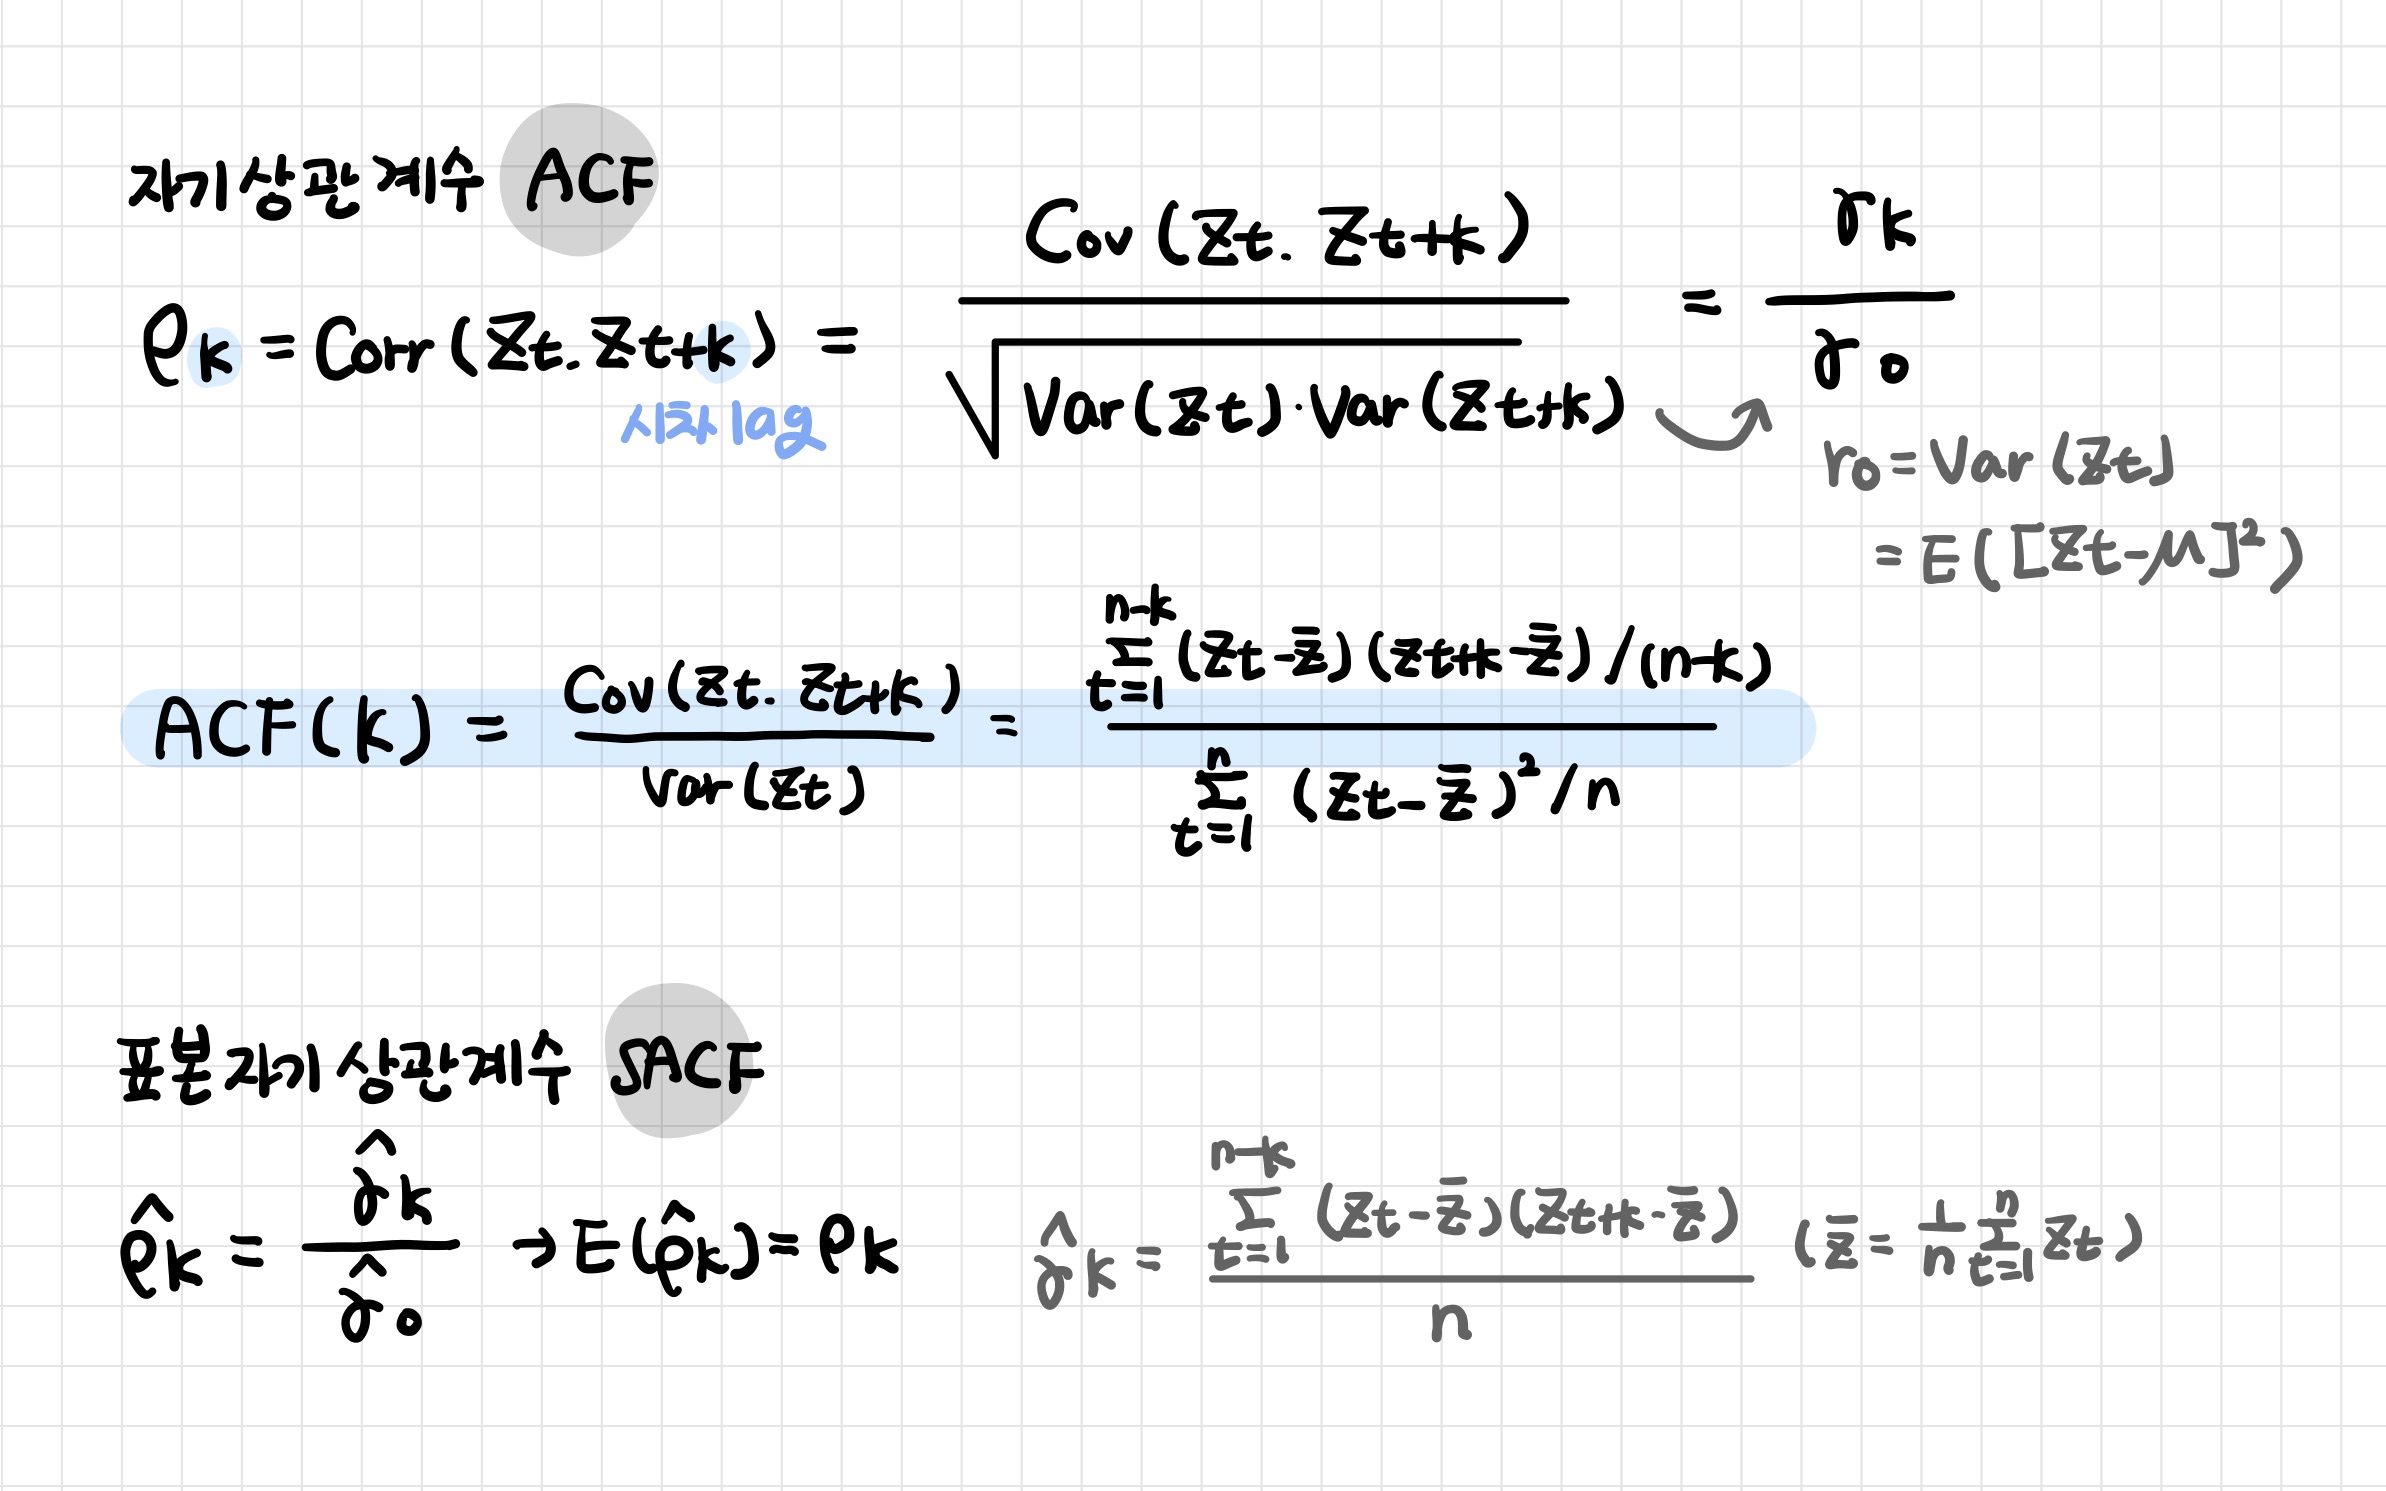 자기상관계수 ACF
ρk = Corr(Zt. Zt+k) = Cov(Zt. Zt+k) / √Var(Zt)·Var(Zt+k) = γk / γ0
시차 lag
r0 = Var(Zt)
= E([Zt-μ]²)
ACF(k) = Cov(Zt. Zt+k) / Var(Zt) = Σ_{t=1}^{n-k} (Zt-z̄)(Zt+k-z̄)/(n-k) / Σ_{t=1}^{n} (Zt-z̄)²/n
표본자기상관계수 SACF
ρ̂k = γ̂k / γ̂0 → E(ρ̂k) = ρk
γ̂k = Σ_{t=1}^{n-k} (Zt-z̄)(Zt+k-z̄) / n (z̄ = 1/n Σ_{t=1}^{n} Zt)